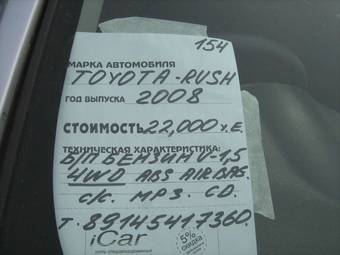 154
МАРКА АВТОМОБИЛЯ
TOYOTA-RUSH
ГОД ВЫПУСКА 2008
СТОИМОСТЬ 22,000 у.е.
ТЕХНИЧЕСКАЯ ХАРАКТЕРИСТИКА:
Б/П БЕНЗИН V-1,5
4WD ABS AIRBAG.
С/С. MP3. CD.
Т. 89145417360.
iCar 5%
скидка